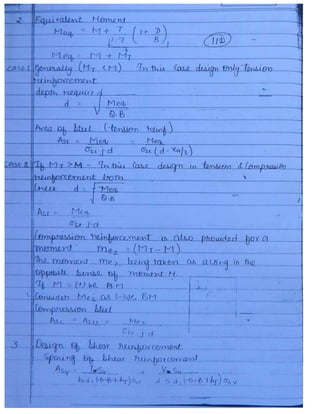 2. Equivalent Moment
Meq = M + T/1.7 (1 + D/B)
(112)
Meq = M + MT
Case-1 Generally (MT < M) In this case design only tension
reinforcement
depth required
d = √(Meq / Q.B)
Area of Steel (tension reinf)
Ast = Meq / σst.j.d = Meq / σst (d - xa/3)
Case-2 If MT > M - In this case design in tension & compression
reinforcement both.
Check d = √(Meq / Q.B)
Ast = Meq / σst.j.d
Compression reinforcement is also provided for a
moment Me2 = (MT - M)
The moment Me2 being taken as acting in the
opposite sense of moment M.
If M = (+)ve BM
Consider Me2 as (-)ve BM
Compression Steel
Asc = Ast2 = Me2 / σst.j.d
3. Design of Shear reinforcement
Spacing of Shear reinforcement